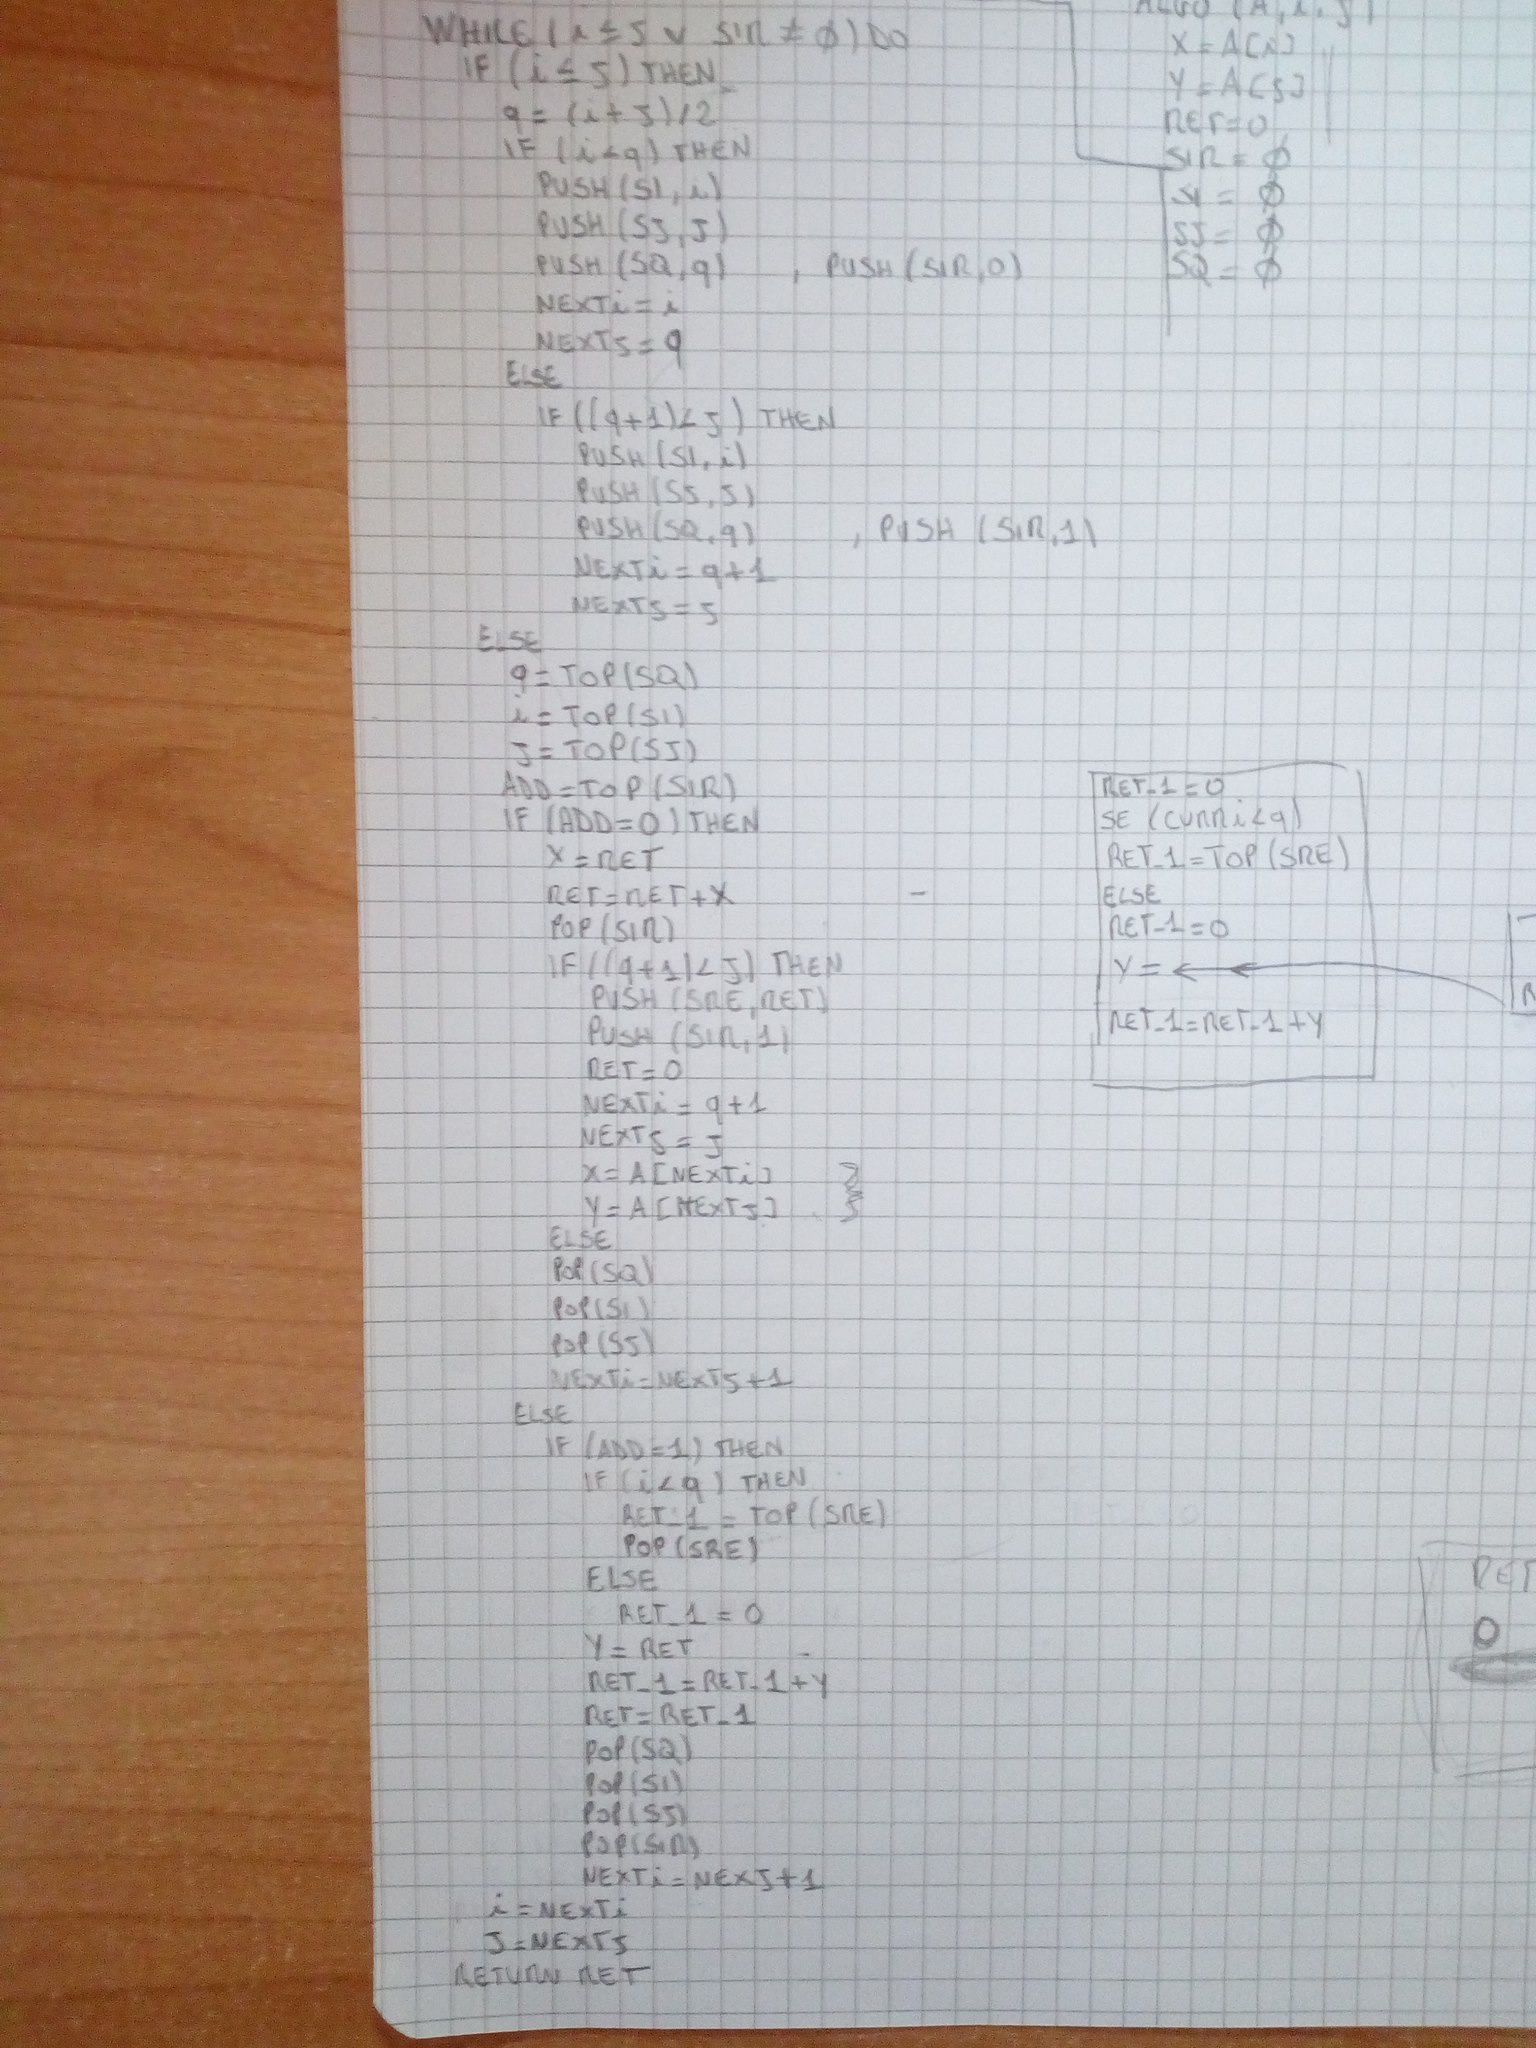 WHILE (i ≤ J ∨ SIR ≠ ∅) DO
IF (i ≤ J) THEN
q = (i + J)/2
IF (i<q) THEN
PUSH (SI, i)
PUSH (SJ, J)
PUSH (SQ, q) , PUSH (SIR, 0)
NEXTi = i
NEXTJ = q
ELSE
IF ((q+1)<J) THEN
PUSH (SI, i)
PUSH (SJ, J)
PUSH (SQ, q) , PUSH (SIR, 1)
NEXTi = q+1
NEXTJ = J
ELSE
q = TOP(SQ)
i = TOP(SI)
J = TOP(SJ)
ADD = TOP(SIR)
IF (ADD=0) THEN
X = RET
RET = RET + X
POP (SIR)
IF ((q+1)<J) THEN
PUSH (SRE, RET)
PUSH (SIR, 1)
RET = 0
NEXTi = q+1
NEXTJ = J
X = A[NEXTi]
Y = A[NEXTJ]
ELSE
POP (SQ)
POP (SI)
POP (SJ)
NEXTi = NEXTJ + 1
ELSE
IF (ADD=1) THEN
IF (i<q) THEN
RET_1 = TOP (SRE)
POP (SRE)
ELSE
RET_1 = 0
Y = RET
RET_1 = RET_1 + Y
RET = RET_1
POP (SQ)
POP (SI)
POP (SJ)
POP (SIR)
NEXTi = NEXJ + 1
i = NEXTi
J = NEXTJ
RETURN RET
ALGO (A, i, J)
X = A[i]
Y = A[J]
RET = 0
SIR = ∅
SI = ∅
SJ = ∅
SQ = ∅
RET_1 = 0
SE (CURRi<q)
RET_1 = TOP (SRE)
ELSE
RET_1 = 0
Y = ←
RET_1 = RET_1 + Y
RET
0